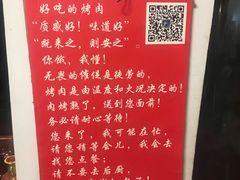 好吃的烤肉
“质感好！味道好”
“既来之，则安之”
你饿，我懂！
无畏的催促是徒劳的，
烤肉是由温度和火候决定的！
肉烤熟了，送到您面前！
务必请耐心等待！
您来了，我可能在忙，
请您稍等会儿，我会去
找您点餐；
请不要去后厨，